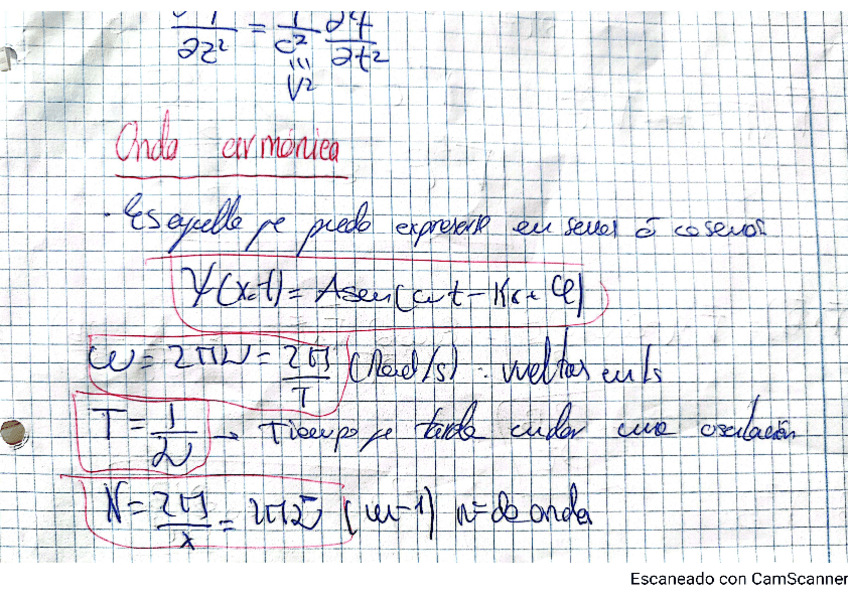 ∂²Ψ/∂z² = 1/c² ∂²Ψ/∂t²
≡
V²
Onda armónica
· Es aquella qe puedo expresarse en senos ó cosenos
Ψ(x,t) = A sen(ωt - Kx + φ)
ω = 2πν = 2π/T (Rad/s) : vueltas en 1s
T = 1/ν → Tiempo qe tarda en dar una oscilación
K = 2π/λ = 2πν̄ (m-1) nº de onda
Escaneado con CamScanner